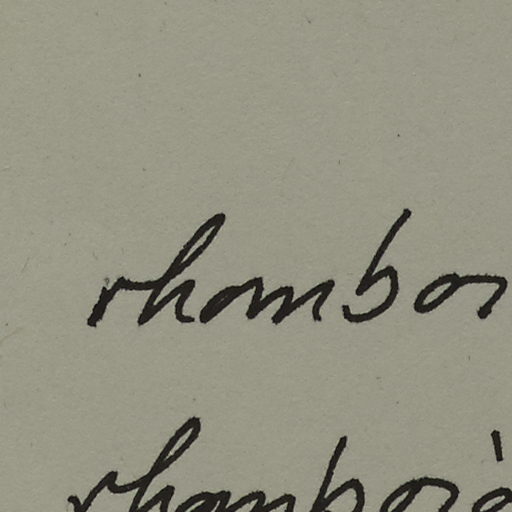 rhomboi
rhomboid